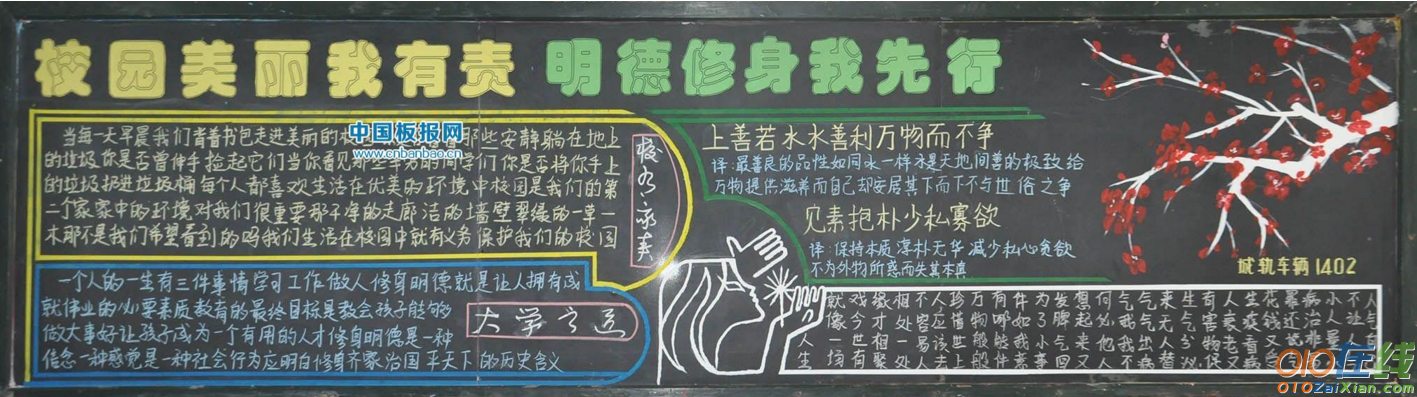 校园美丽我有责 明德修身我先行
当每一天早晨我们背着书包走进美丽的校 那些安静躺在地上
的垃圾你是否曾伸手捡起它们当你看见那些 的同学们你是否将你手上
的垃圾扔进垃圾桶每个人都喜欢生活在优美的环境中校园是我们的第
二个家家中的环境对我们很重要那干净的走廊洁的墙壁翠绿的一草一
木那不是我们希望看到的吗我们生活在校园中就有义务保护我们的校园
中国板报网
www.cnbanbao.cn
一个人的一生有三件事情学习工作做人修身明德就是让人拥有成
就伟业的必要素质教育的最终目标是教会孩子能够
做大事好让孩子成为一个有用的人才修身明德是一种
信念一种感觉是一种社会行为应明白修身齐家治国平天下的历史含义
大学之道
上善若水水善利万物而不争
译:最善良的品性如同水一样水是天地间善的极致给
万物提供滋养而自己却安居其下而下不与世俗之争
见素抱朴少私寡欲
译:保持本质淳朴无华减少私心贪欲
不为外物所惑而失其本真
城轨车辆1402
就戏缘相不人珍万有件为发想何气气来生有人生花罪病小不人
像今才处容应惜物时如了脾起必我气无气害家疫钱还治人让气
人一世相一易该世般能我小气来他我出人分物老看又 非量
生场有聚处人去上般件意事回又人不病替 促又病
010在线
010ZaiXian.com